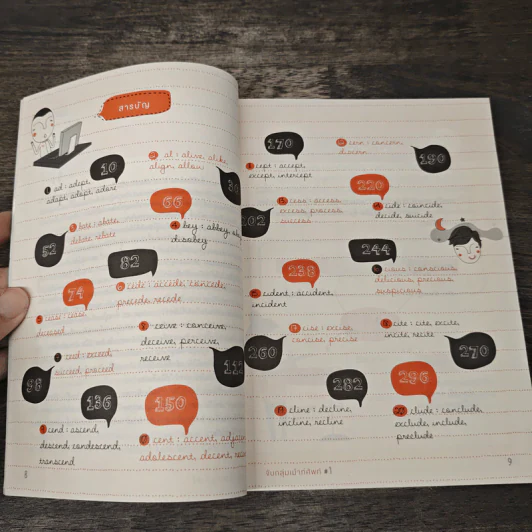 สารบัญ
10
1 ad : adept,
adapt, adopt, adore
2 al : alive, alike,
align, allow
30
52
3 bate : abate,
debate, rebate
66
4 bey : abbey,
disobey
82
74
5 cease : cease,
deceased
6 cide : accede, concede,
precede, recede
98
7 ceed : exceed,
succeed, proceed
8 ceive : conceive,
deceive, perceive,
receive
112
136
9 cend : ascend,
descend, condescend,
transcend
150
cent : accent,
adolescent, decent,
8
170
cept : accept,
except, intercept
cern : concern,
discern
190
202
cess : access,
excess, process,
success
220
cide : coincide,
decide, suicide
238
cident : accident,
incident
244
cious : conscious,
delicious, precious,
suspicious
260
17 cise : excise,
concise, precise
18 cite : cite, excite,
incite, recite
270
282
19 cline : decline,
incline, recline
296
20 clude : conclude,
exclude, include,
preclude
9